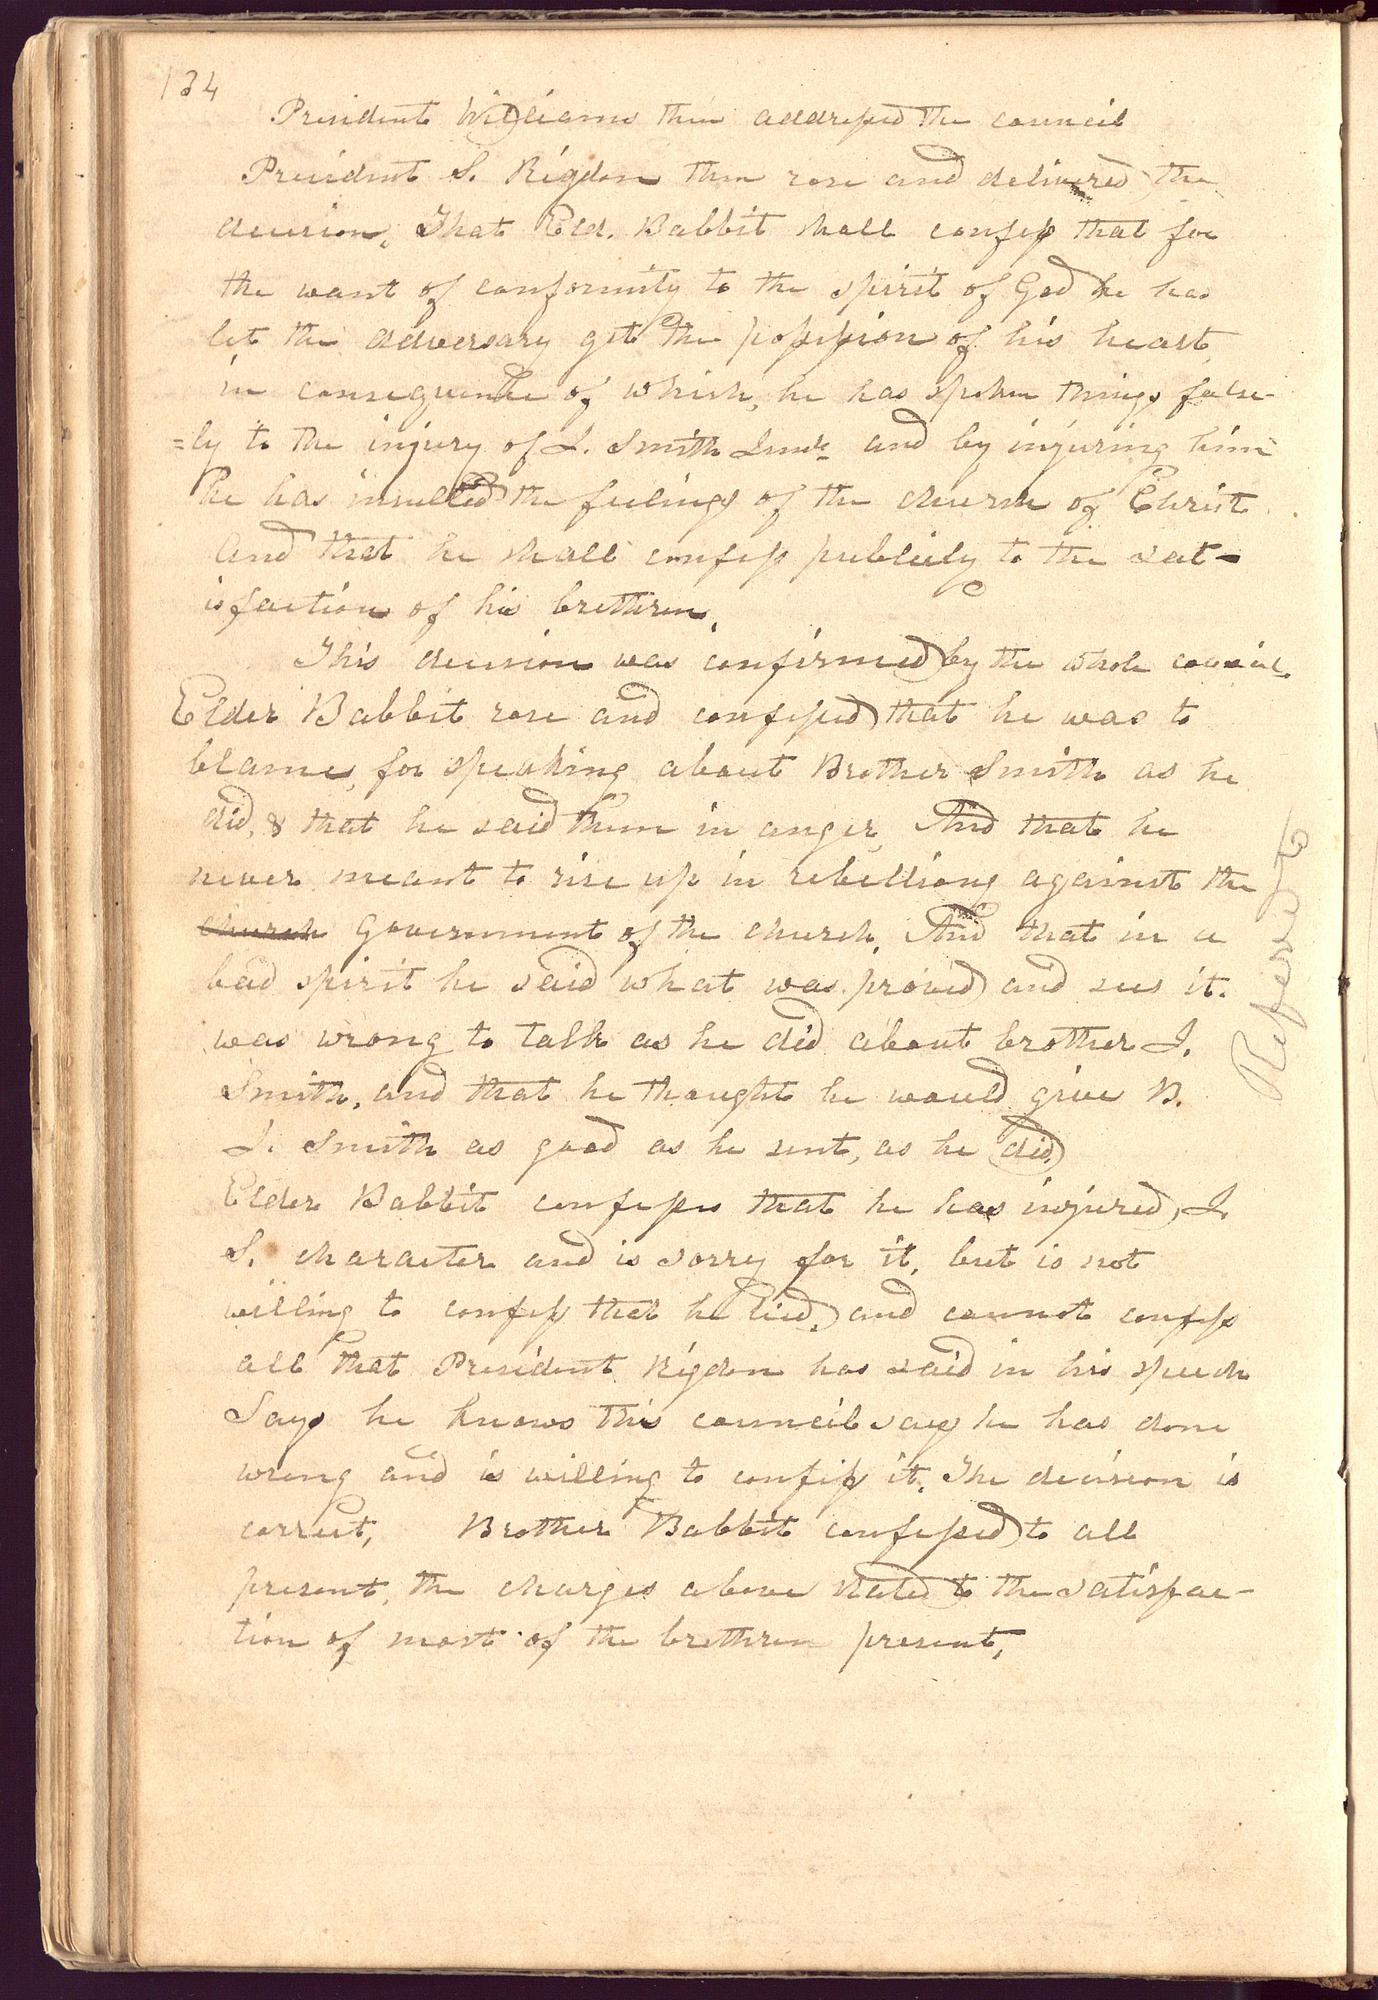 134
President Williams then addressed the council
President S. Rigdon then rose and delivered the
decision, That Eld. Babbit shall confess that for
the want of conformity to the spirit of God he has
let the adversary get the possession of his heart,
in consequence of which, he has spoken things false-
=ly to the injury of J. Smith Junr. and by injuring him
he has insulted the feelings of the church of Christ
And that he shall confess publicly to the sat-
isfaction of his brethren,
This decision was confirmed by the whole council.
Elder Babbit rose and confessed that he was to
blame, for speaking about Brother Smith as he
did, & that he said them in anger, And that he
never meant to rise up in rebelliong against the
church Government of the church, And that in a
bad spirit he said what was proved and sees it.
was wrong to talk as he did about brother J.
Smith, and that he thought he would give B.
J. Smith as good as he sent, as he did,
Elder Babbit confesses that he has injured, J.
S. character and is sorry for it, but is not
willing to confess that he lied, and cannot confess
all that President Rigdon has said in his speech
Says he knows this council say he has done
wrong and is willing to confess it, The decision is
correct, Brother Babbit confessed to all
present, the charges above stated to the satisfac-
tion of most of the brethren present,